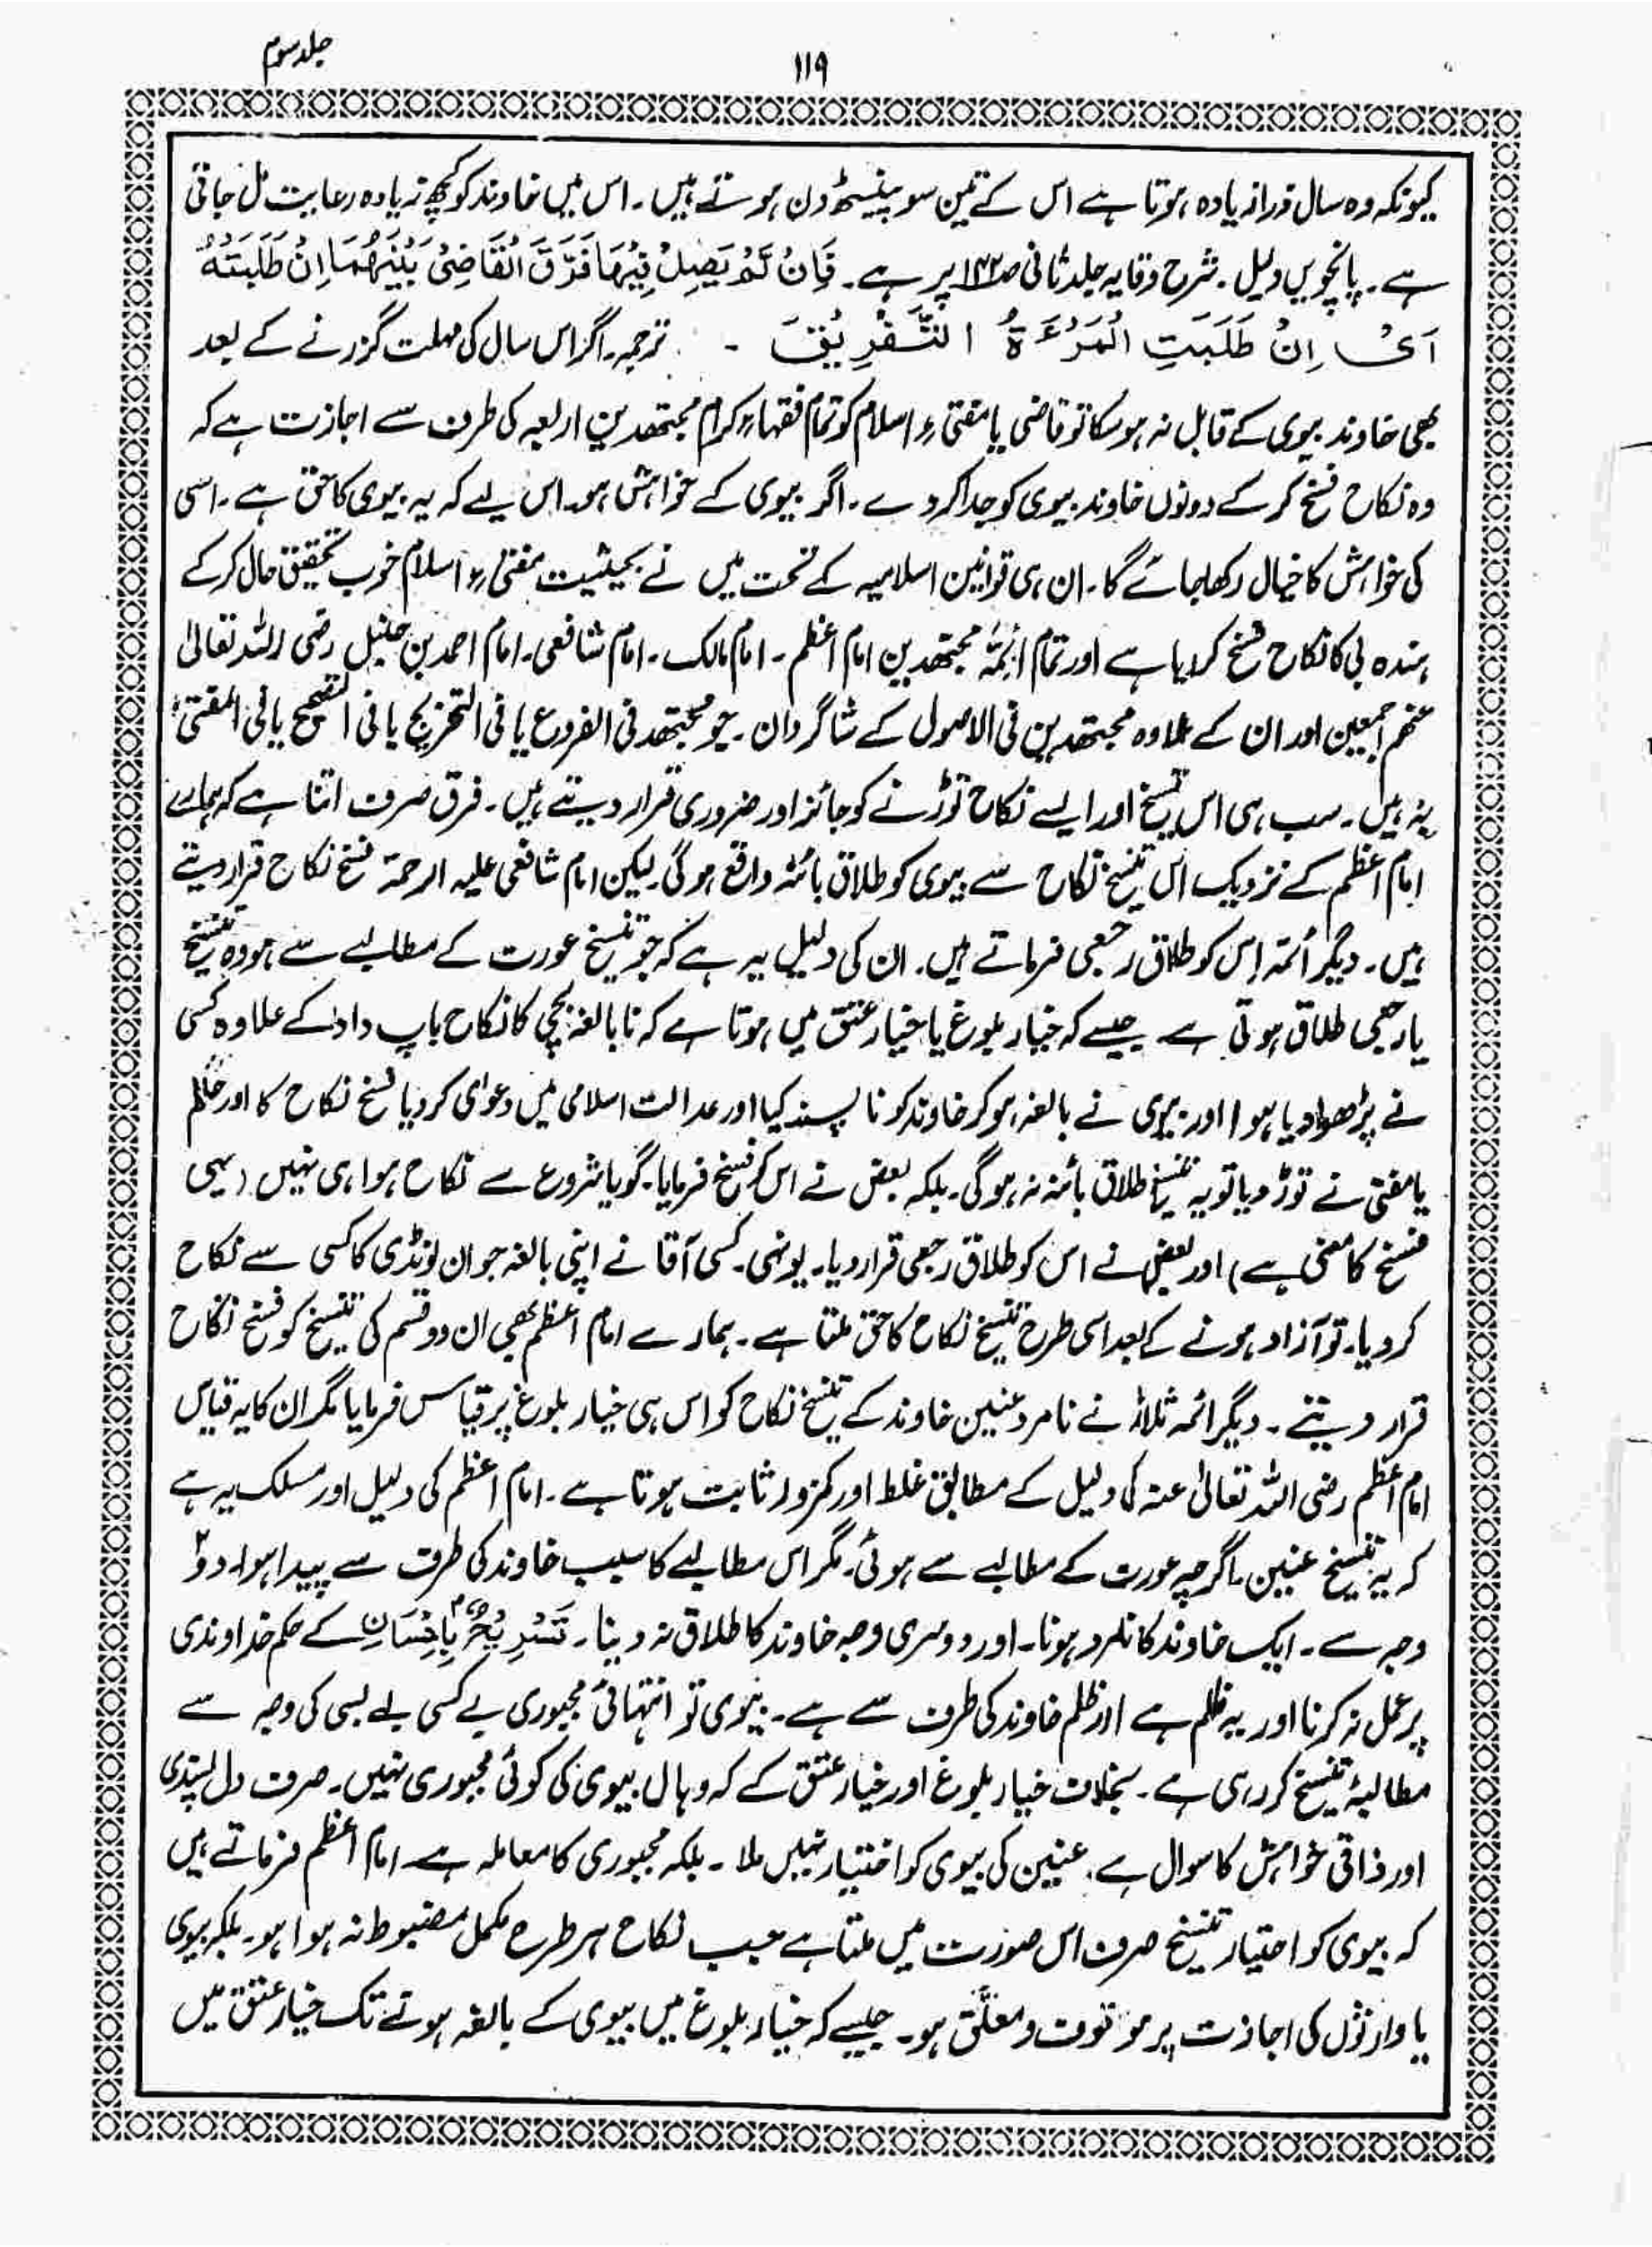 جلد سوم
۱۱۹
کیونکہ وہ سال ذرا زیادہ ہوتا ہے اس کے تین سو پینسٹھ دن ہوتے ہیں۔ اس میں خاوند کو کچھ زیادہ رعایت مل جاتی
ہے۔ پانچویں دلیل۔ شرح وقایہ جلد ثانی ص۱۴۲ پر ہے۔ فَاِنْ لَّمْ یَصِلْ فِیْهَا فَرَّقَ الْقَاضِیْ بَیْنَهُمَا اِنْ طَلَبَتْهُ
اَیْ اِنْ طَلَبَتِ الْمَرْءَةُ التَّفْرِیْقَ ۔ ترجمہ۔ اگر اس سال کی مہلت گزرنے کے بعد
بھی خاوند بیوی کے قابل نہ ہو سکا تو قاضی یا مفتیءِ اسلام کو تمام فقہاءِ کرام مجتھدین اربعہ کی طرف سے اجازت ہے کہ
وہ نکاح فسخ کر کے دونوں خاوند بیوی کو جدا کر دے۔ اگر بیوی کے خواہش ہو۔ اس لیے کہ یہ بیوی کا حق ہے۔ اسی
کی خواہش کا خیال رکھا جائے گا۔ ان ہی قوانین اسلامیہ کے تحت میں نے بحیثیت مفتیءِ اسلام خوب تحقیق حال کر کے
ہندہ بی کا نکاح فسخ کر دیا ہے اور تمام ائمۂ مجتھدین امام اعظم۔ امام مالک۔ امام شافعی۔ امام احمد بن حنبل رضی اللہ تعالیٰ
عنھم اجمعین اور ان کے علاوہ مجتھدین فی الاصول کے شاگردان۔ جو مجتھد فی الفروع یا فی التخریج یا فی التصحیح یا فی المفتیٰ
بہ ہیں۔ سب ہی اس تنسیخ اور ایسے نکاح توڑنے کو جائز اور ضروری قرار دیتے ہیں۔ فرق صرف اتنا ہے کہ ہمارے
امام اعظم کے نزدیک اس تنسیخ نکاح سے بیوی کو طلاق بائنہ واقع ہو گی۔ لیکن امام شافعی علیہ الرحمۃ فسخ نکاح قرار دیتے
ہیں۔ دیگر ائمہ اِس کو طلاق رجعی فرماتے ہیں۔ ان کی دلیل یہ ہے کہ جو تنسیخ عورت کے مطالبے سے ہو وہ تنسیخ
یا رجعی طلاق ہوتی ہے جیسے کہ خیار بلوغ یا خیار عتق میں ہوتا ہے کہ نابالغہ بچی کا نکاح باپ دادا کے علاوہ کسی
نے پڑھوا دیا ہو اور بیوی نے بالغہ ہو کر خاوند کو نا پسند کیا اور عدالت اسلامی میں دعوٰی کر دیا فسخ نکاح کا اور حاکم
یا مفتی نے توڑ دیا تو یہ تنسیخ طلاق بائنہ نہ ہو گی۔ بلکہ بعض نے اس کو فسخ فرمایا۔ گویا شروع سے نکاح ہوا ہی نہیں (یہی
فسخ کا معنی ہے) اور بعض نے اس کو طلاق رجعی قرار دیا۔ یونہی۔ کسی آقا نے اپنی بالغہ جوان لونڈی کا کسی سے نکاح
کر دیا۔ تو آزاد ہونے کے بعد اسی طرح تنسیخ نکاح کا حق ملتا ہے۔ ہمارے امام اعظم بھی ان دو قسم کی تنسیخ کو فسخ نکاح
قرار دیتے۔ دیگر ائمہ ثلاثہ نے نامرد عنین خاوند کے تنسیخ نکاح کو اس ہی خیار بلوغ پر قیاس فرمایا مگر ان کا یہ قیاس
امام اعظم رضی اللہ تعالیٰ عنہ کی دلیل کے مطابق غلط اور کمزور ثابت ہوتا ہے۔ امام اعظم کی دلیل اور مسلک یہ ہے
کہ یہ تنسیخ عنین۔ اگرچہ عورت کے مطالبے سے ہوئی۔ مگر اس مطالبے کا سبب خاوند کی طرف سے پیدا ہوا۔ دو
وجہ سے۔ ایک خاوند کا نامرد ہونا۔ اور دوسری وجہ خاوند کا طلاق نہ دینا۔ تَسْرِیْحٌۢ بِاِحْسَانٍ کے حکم خداوندی
پر عمل نہ کرنا اور یہ ظلم ہے اور ظلم خاوند کی طرف سے ہے۔ بیوی تو انتہائی مجبوری بے کسی بے بسی کی وجہ سے
مطالبۂ تنسیخ کر رہی ہے۔ بخلاف خیار بلوغ اور خیار عتق کے کہ وہاں بیوی کی کوئی مجبوری نہیں۔ صرف دل پسندی
اور ذاتی خواہش کا سوال ہے۔ عنین کی بیوی کو اختیار نہیں ملا۔ بلکہ مجبوری کا معاملہ ہے۔ امام اعظم فرماتے ہیں
کہ بیوی کو اختیار تنسیخ صرف اس صورت میں ملتا ہے جب نکاح ہر طرح مکمل مضبوط نہ ہوا ہو۔ بلکہ بیوی
یا وارثوں کی اجازت پر موقوف و معلّق ہو۔ جیسے کہ خیار بلوغ میں بیوی کے بالغہ ہونے تک خیار عتق میں